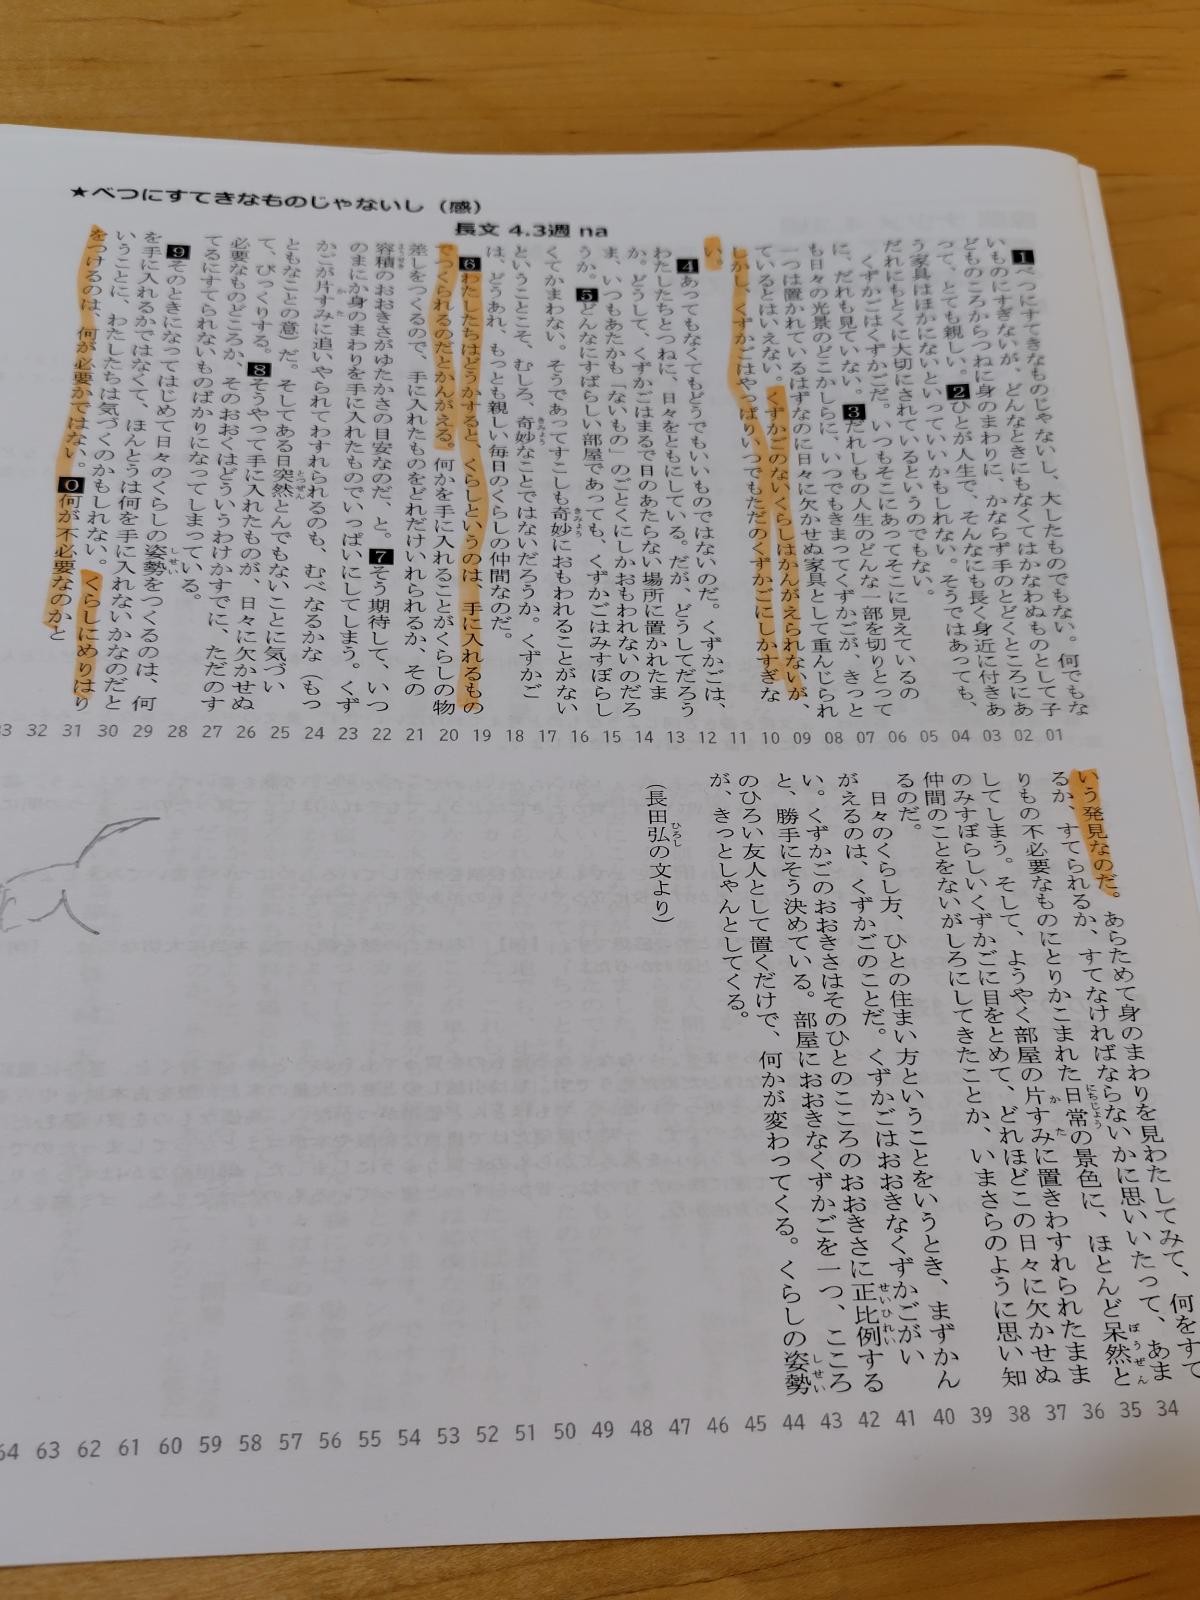 ★べつにすてきなものじゃないし（感）
長文 4.3週 na
1べつにすてきなものじゃないし、大したものでもない。何でもな
いものにすぎないが、どんなときにもなくてはかなわぬものとして子
どものころからつねに身のまわりに、かならず手のとどくところにあ
って、とても親しい。2ひとが人生で、そんなにも長く身近に付きあ
う家具はほかにないといっていいかもしれない。そうではあっても、
だれにもとくに大切にされているというのでもない。
くずかごはくずかごだ。いつもそこにあってそこに見えているの
に、だれも見ていない。3だれしもの人生のどんな一部を切りとって
も日々の光景のどこかしらに、いつでもきまってくずかごが、きっと
一つは置かれているはずなのに日々に欠かせぬ家具として重んじられ
ているとはいえない。くずかごのないくらしはかんがえられないが、
しかし、くずかごはやっぱりいつでもただのくずかごにしかすぎな
い。
4あってもなくてもどうでもいいものではないのだ。くずかごは、
わたしたちとつねに、日々をともにしている。だが、どうしてだろう
か。どうして、くずかごはまるで日のあたらない場所に置かれたま
ま、いつもあたかも「ないもの」のごとくにしかおもわれないのだろ
うか。5どんなにすばらしい部屋であっても、くずかごはみすぼらし
くてかまわない。そうであってすこしも奇妙におもわれることがない
ということこそ、むしろ、奇妙なことではないだろうか。くずかご
は、どうあれ、もっとも親しい毎日のくらしの仲間なのだ。
6わたしたちはどうかすると、くらしというのは、手に入れるもの
でつくられるのだとかんがえる。何かを手に入れることがくらしの物
差しをつくるので、手に入れたものをどれだけいれられるか、その
容積のおおきさがゆたかさの目安なのだ、と。7そう期待して、いつ
のまにか身のまわりを手に入れたものでいっぱいにしてしまう。くず
かごが片すみに追いやられてわすれられるのも、むべなるかな（もっ
ともなことの意）だ。そしてある日突然とんでもないことに気づい
て、びっくりする。8そうやって手に入れたものが、日々に欠かせぬ
必要なものどころか、そのおおくはどういうわけかすでに、ただのす
てるにすてられないものばかりになってしまっている。
9そのときになってはじめて日々のくらしの姿勢をつくるのは、何
を手に入れるかではなくて、ほんとうは何を手に入れないかなのだと
いうことに、わたしたちは気づくのかもしれない。くらしにめりはり
をつけるのは、何が必要かではない。0何が不必要なのかと
01 02 03 04 05 06 07 08 09 10 11 12 13 14 15 16 17 18 19 20 21 22 23 24 25 26 27 28 29 30 31 32 33
いう発見なのだ。あらためて身のまわりを見わたしてみて、何をすて
るか、すてられるか、すてなければならないかに思いいたって、あま
りもの不必要なものにとりかこまれた日常の景色に、ほとんど呆然と
してしまう。そして、ようやく部屋の片すみに置きわすれられたまま
のみすぼらしいくずかごに目をとめて、どれほどこの日々に欠かせぬ
仲間のことをないがしろにしてきたことか、いまさらのように思い知
るのだ。
日々のくらし方、ひとの住まい方ということをいうとき、まずかん
がえるのは、くずかごのことだ。くずかごはおおきなくずかごがい
い。くずかごのおおきさはそのひとのこころのおおきさに正比例する
と、勝手にそう決めている。部屋におおきなくずかごを一つ、こころ
のひろい友人として置くだけで、何かが変わってくる。くらしの姿勢
が、きっとしゃんとしてくる。
（長田弘の文より）
34 35 36 37 38 39 40 41 42 43 44 45 46 47 48 49 50 51 52 53 54 55 56 57 58 59 60 61 62 63 64